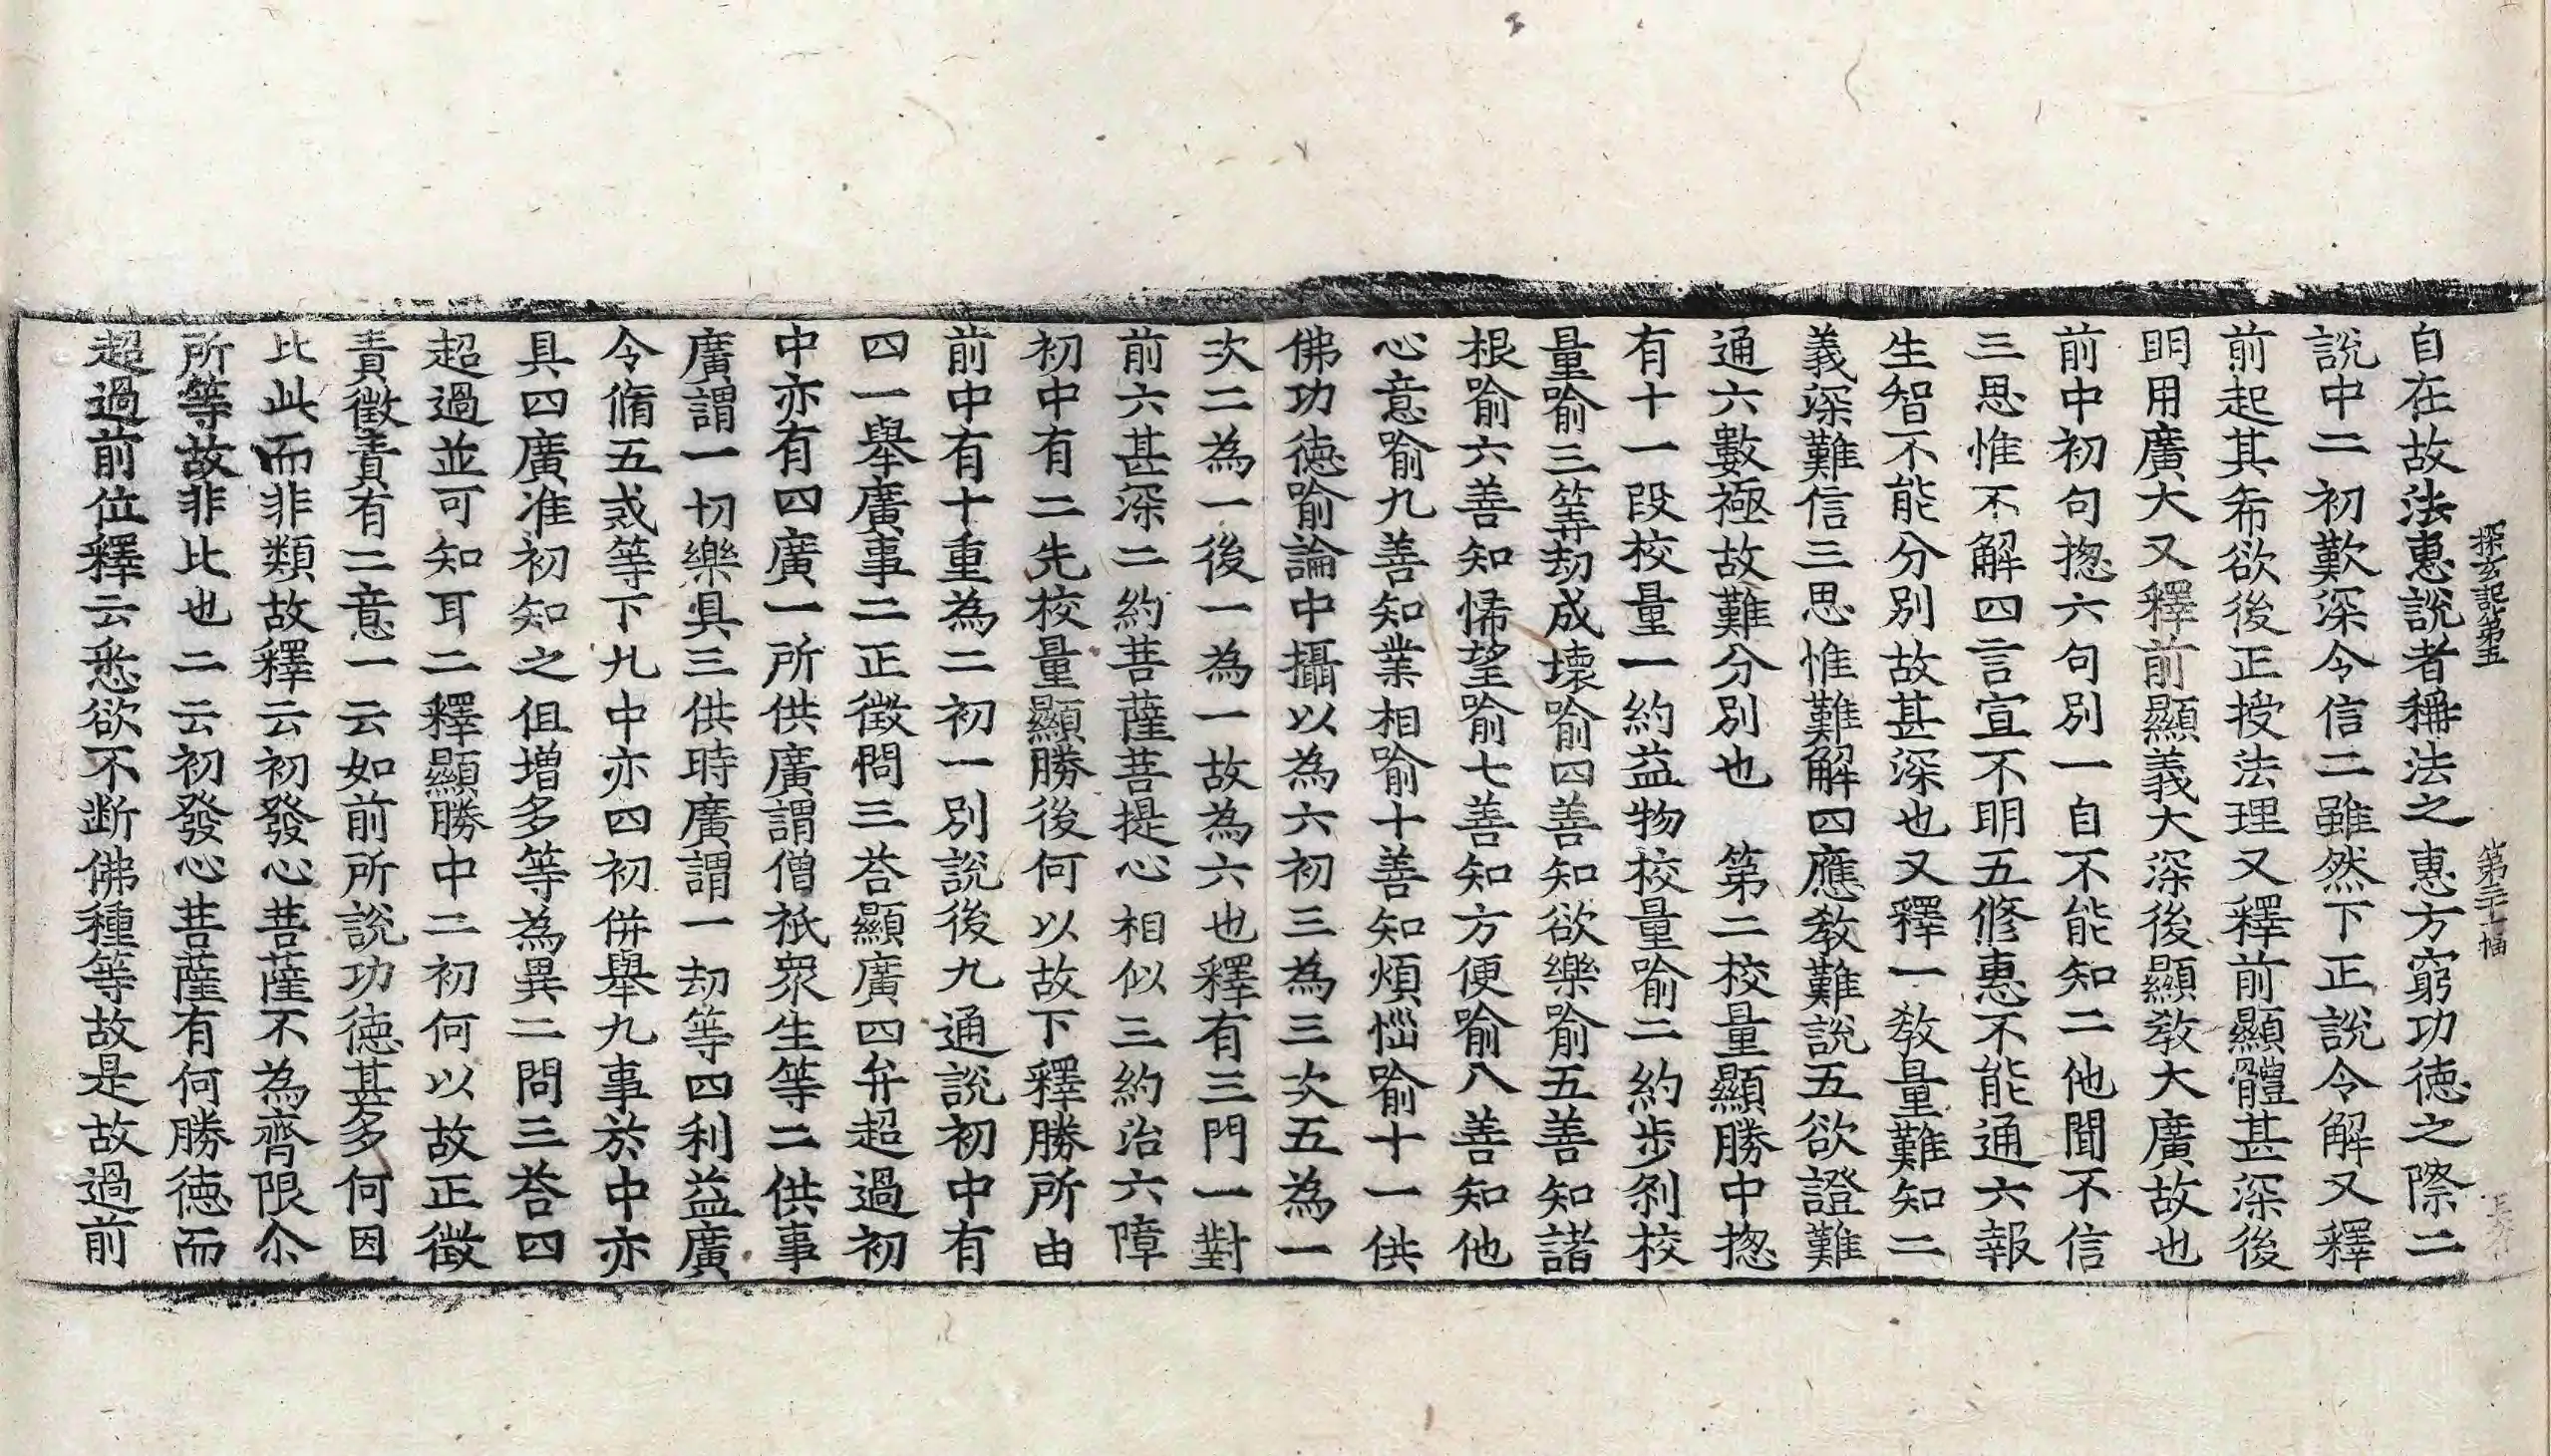 探玄記第五　第三十一幅
自在故法惠說者稱法之惠方窮功徳之際二
說中二初歎深令信二雖然下正說令解又釋
前起其希欲後正授法理又釋前顯體甚深後
明用廣大又釋前顯義大深後顯教大廣故也
前中初句揔六句別一自不能知二他聞不信
三思惟不解四言宣不明五修惠不能通六報
生智不能分別故甚深也又釋一教量難知二
義深難信三思惟難解四應教難說五欲證難
通六數極故難分別也　第二校量顯勝中揔
有十一段校量一約益物校量喻二約步剎校
量喻三筭劫成壞喻四善知欲樂喻五善知諸
根喻六善知悕望喻七善知方便喻八善知他
心意喻九善知業相喻十善知煩惱喻十一供
佛功徳喻論中攝以為六初三為三次五為一
次二為一後一為一故為六也釋有三門一對
前六甚深二約菩薩菩提心相似三約治六障
初中有二先校量顯勝後何以故下釋勝所由
前中有十重為二初一別說後九通說初中有
四一舉廣事二正徵問三荅顯廣四弁超過初
中亦有四廣一所供廣謂僧祇衆生等二供事
廣謂一切樂具三供時廣謂一劫等四利益廣
令脩五戒等下九中亦四初併舉九事於中亦
具四廣准初知之但增多等為異二問三荅四
超過並可知耳二釋顯勝中二初何以故正徵
責徵責有二意一云如前所說功徳甚多何因
比此而非類故釋云初發心菩薩不為齊限尒
所等故非比也二云初發心菩薩有何勝徳而
超過前位釋云悉欲不断佛種等故是故過前